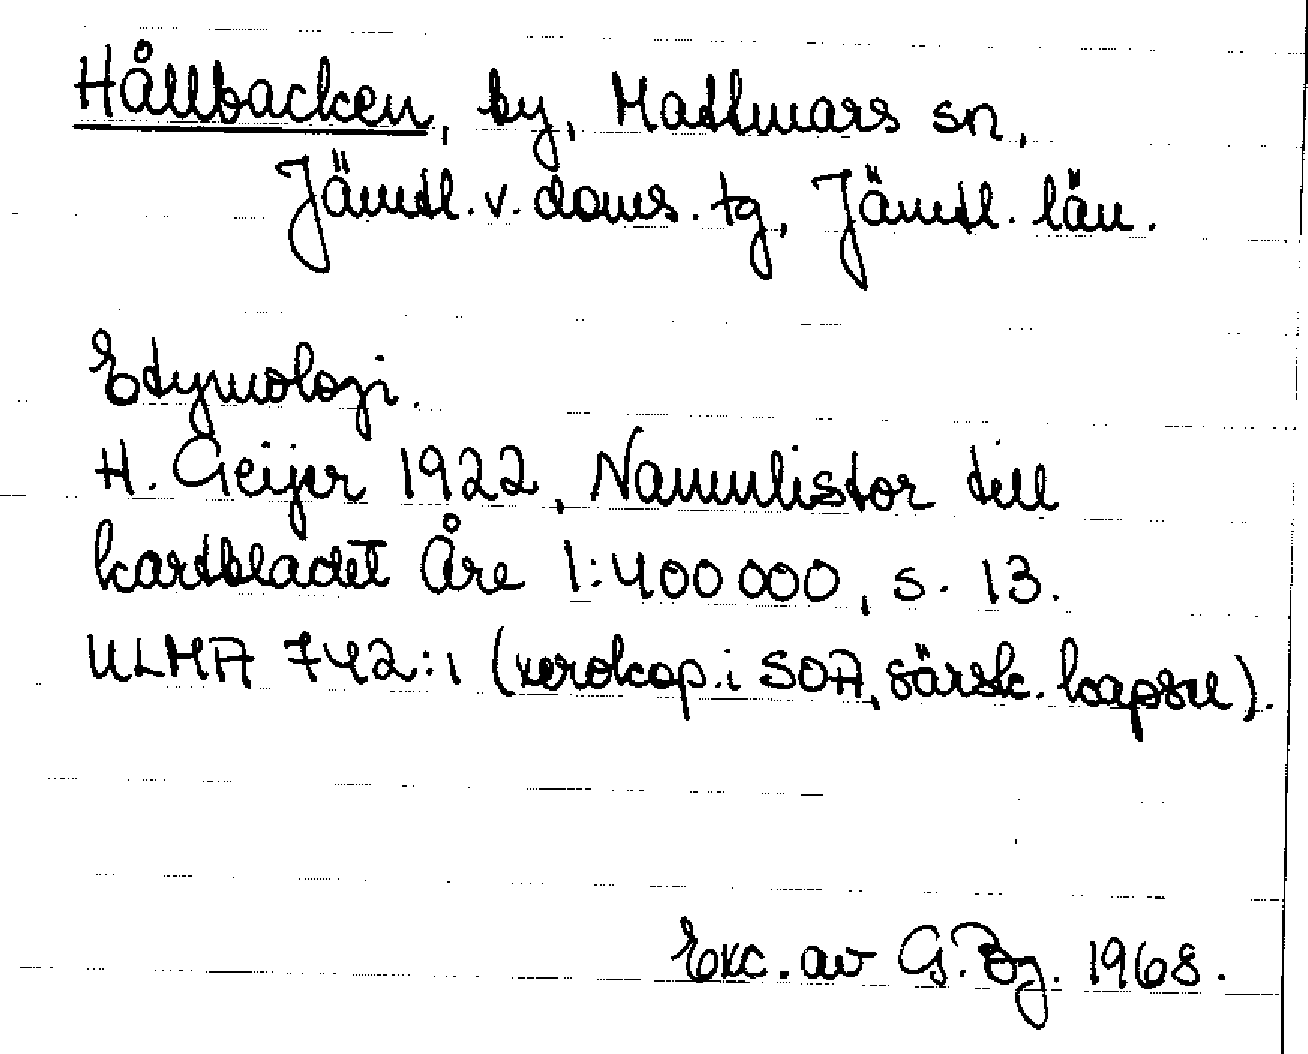 Hållbacken, by, Mattmars sn,
Jämtl. v. doms. tg, Jämtl. län.
Etymologi.
H. Geijer 1922, Namnlistor till
kartbladet Åre 1:400 000, s. 13.
ULMA 742:1 (xerokop. i SOA, särsk. kapsel).
Exc. av G. Bg. 1968.